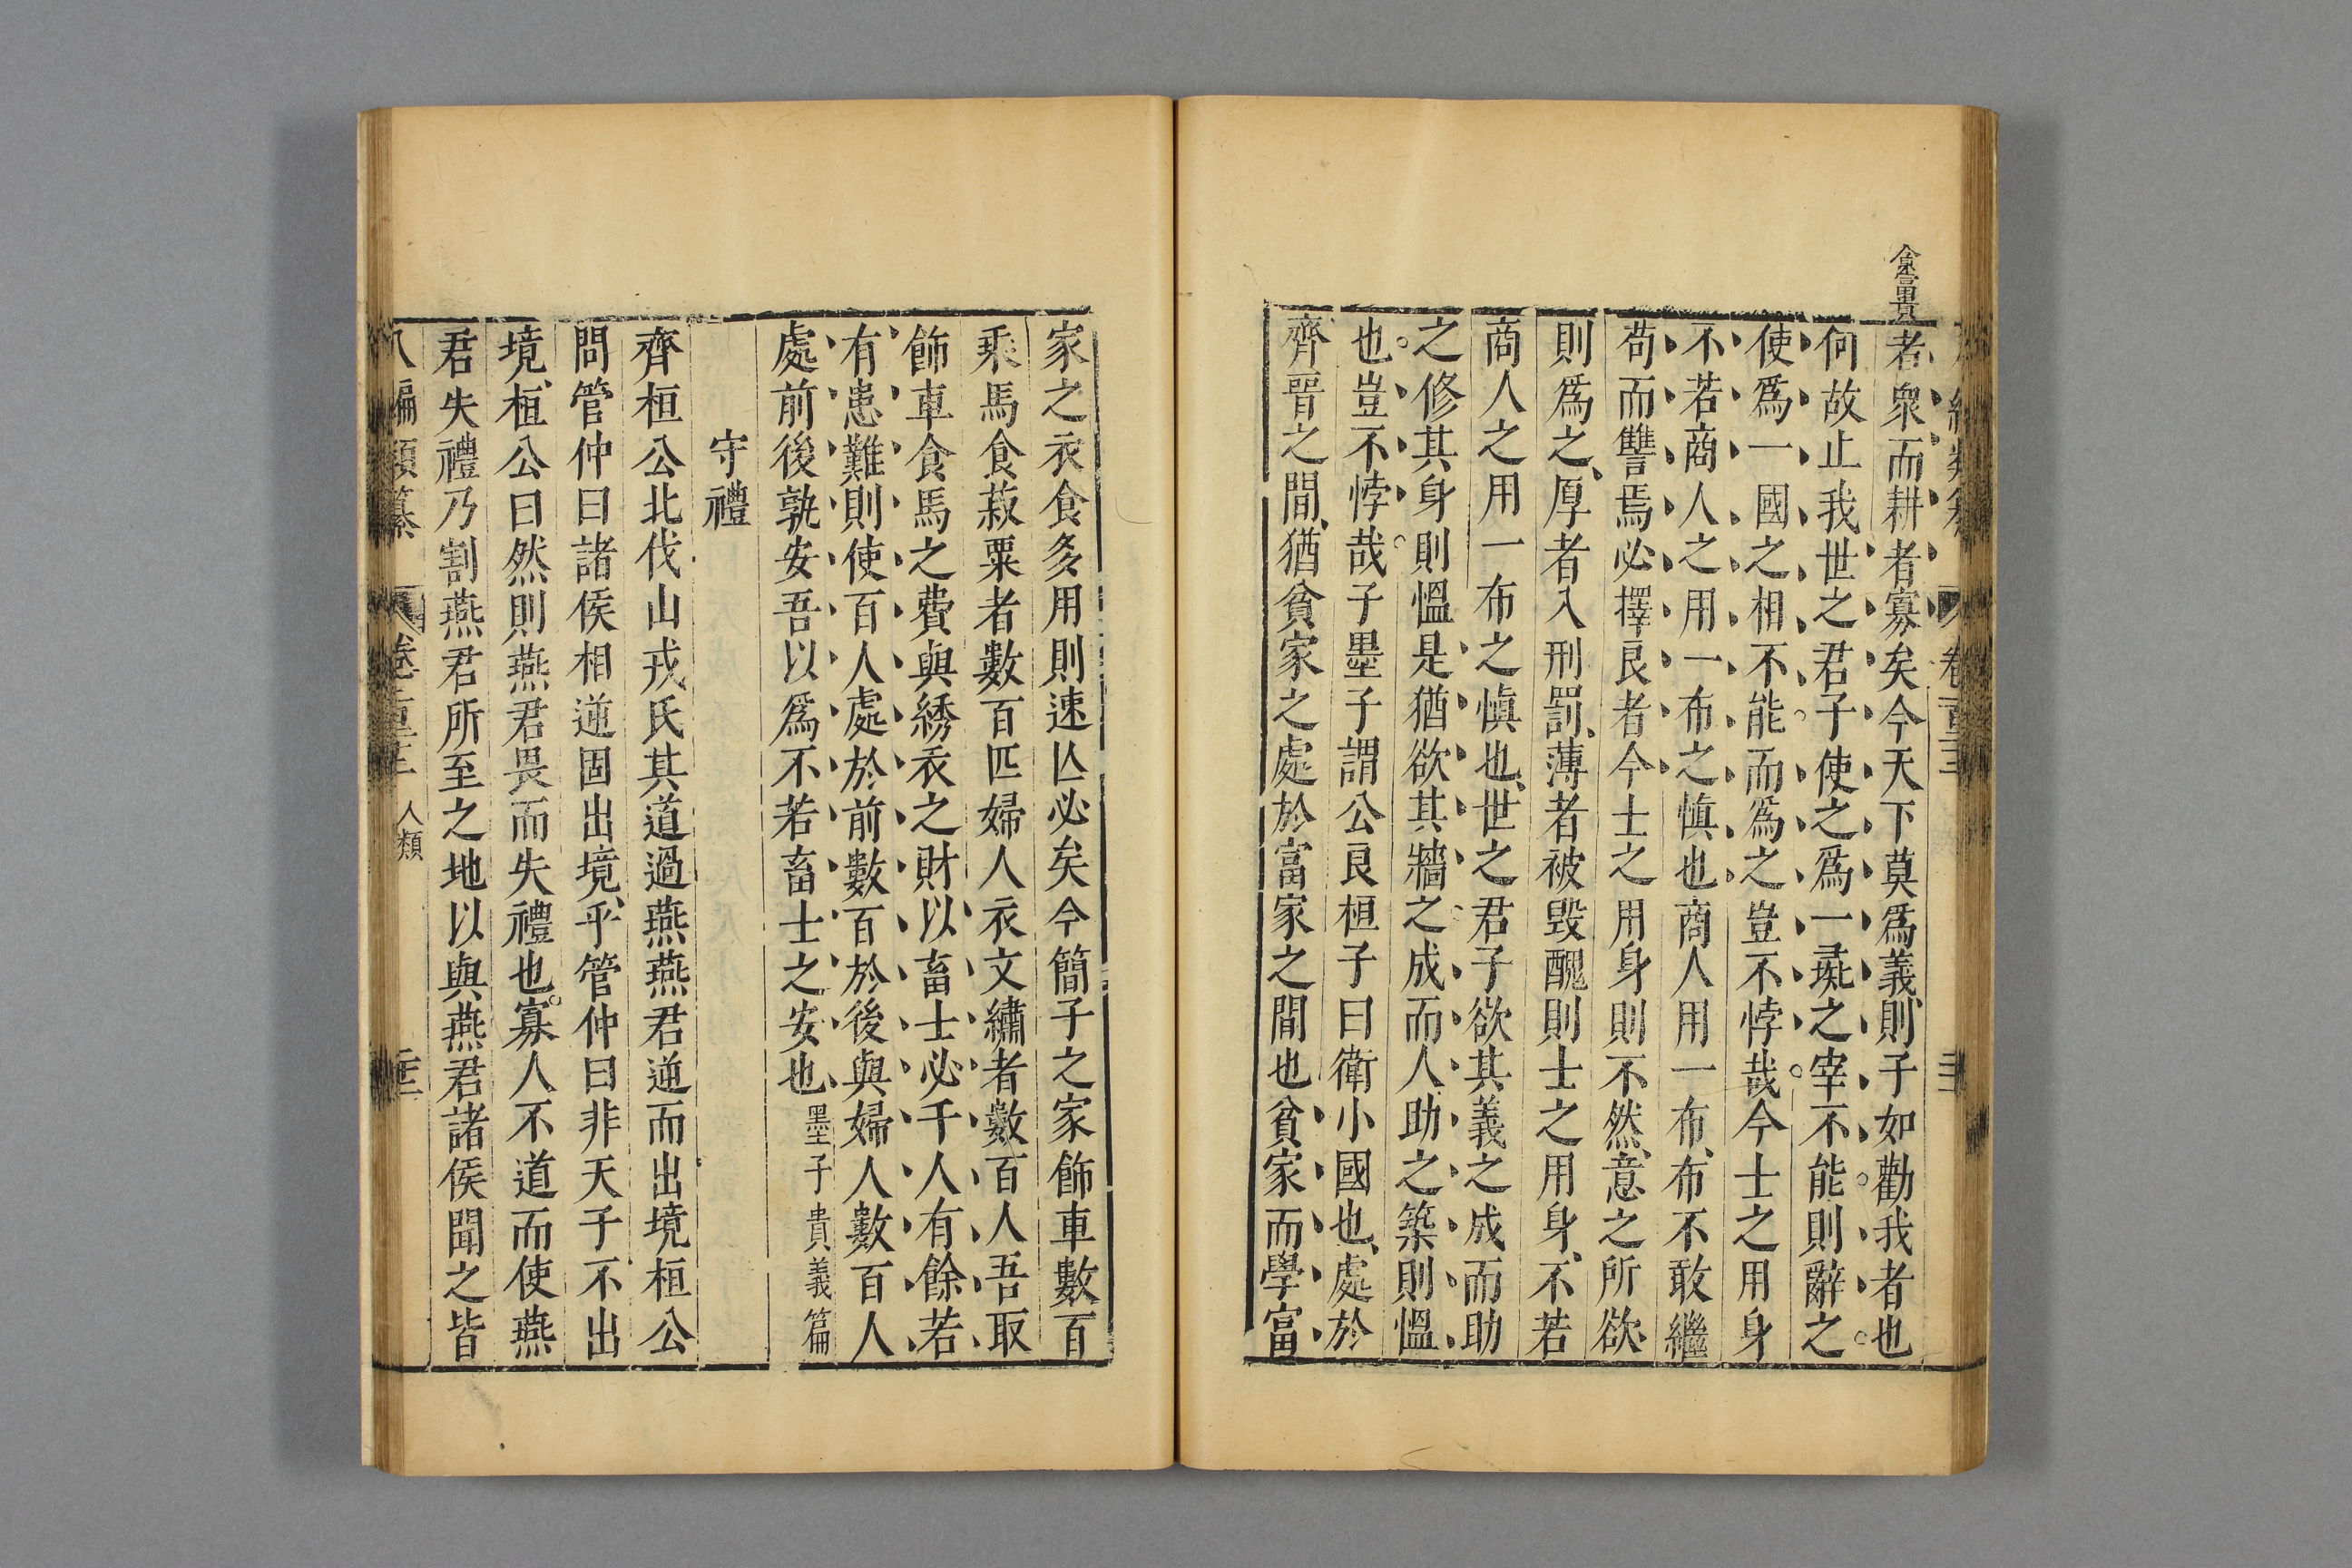 食者眾而耕者寡矣今天下莫爲義則子如勸我者也
何故止我世之君子使之爲一彘之宰不能則辭之
使爲一國之相不能而爲之豈不悖哉今士之用身
不若商人之用一布之愼也商人用一布布不敢繼
苟而讐焉必擇良者今士之用身則不然意之所欲
則爲之厚者入刑罰薄者被毀醜則士之用身不若
商人之用一布之愼也世之君子欲其義之成而助
之修其身則慍是猶欲其牆之成而人助之築則慍
也豈不悖哉子墨子謂公良桓子曰衛小國也處於
齊晉之間猶貧家之處於富家之間也貧家而學富
家之衣食多用則速亾必矣今簡子之家飾車數百
乘馬食菽粟者數百匹婦人衣文繡者數百人吾取
飾車食馬之費與綉衣之財以畜士必千人有餘若
有患難則使百人處於前數百於後與婦人數百人
處前後孰安吾以爲不若畜士之安也墨子貴義篇
守禮
齊桓公北伐山戎氏其道過燕燕君逆而出境桓公
問管仲曰諸侯相逆固出境乎管仲曰非天子不出
境桓公曰然則燕君畏而失禮也寡人不道而使燕
君失禮乃割燕君所至之地以與燕君諸侯聞之皆
八編類纂 卷 人類